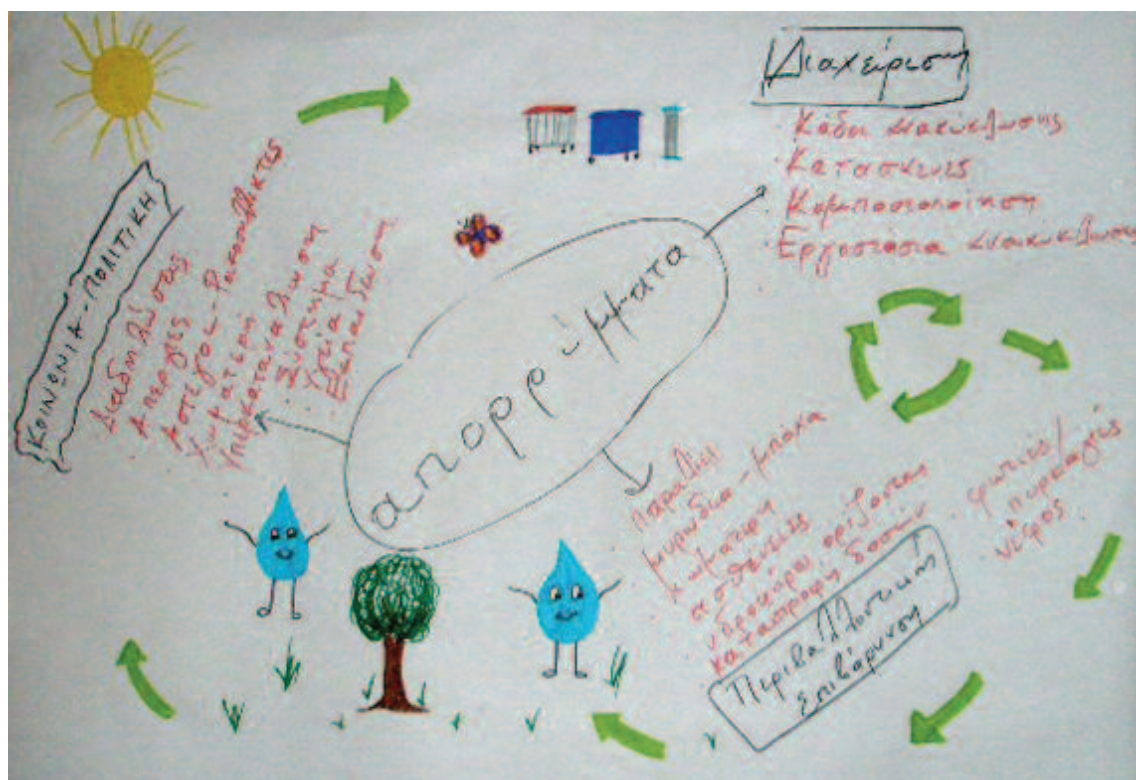 Διαχείριση
· Κάδοι ανακύκλωσης
· Κατασκευές
· Κομποστοποίηση
· Εργοστάσια ανακύκλωσης
ΚΟΙΝΩΝΙΑ - ΠΟΛΙΤΙΚΗ
· Διαδηλώσεις
· Απεργίες
· Αστέγοι - Ρακοσυλλέκτες
· Χωματερή
· Υπερκατανάλωση
· Σύστημα
· Υγεία
· Εκπαίδευση
απορρίμματα
παραλίες
μυρωδιά - μπόχα
χωματερή
ασθένειες
υδροφόροι ορίζοντες
καταστροφή δασών
· φωτιές/
πυρκαγιές
· νέφος
Περιβαλλοντική
επιβάρυνση